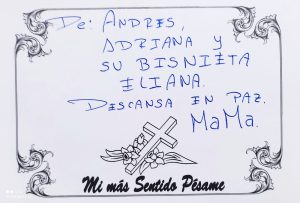 De: ANDRES,
ADRIANA y
SU BISNIETA
ELIANA.
DESCANSA EN PAZ.
MaMa.
Mi más Sentido Pésame